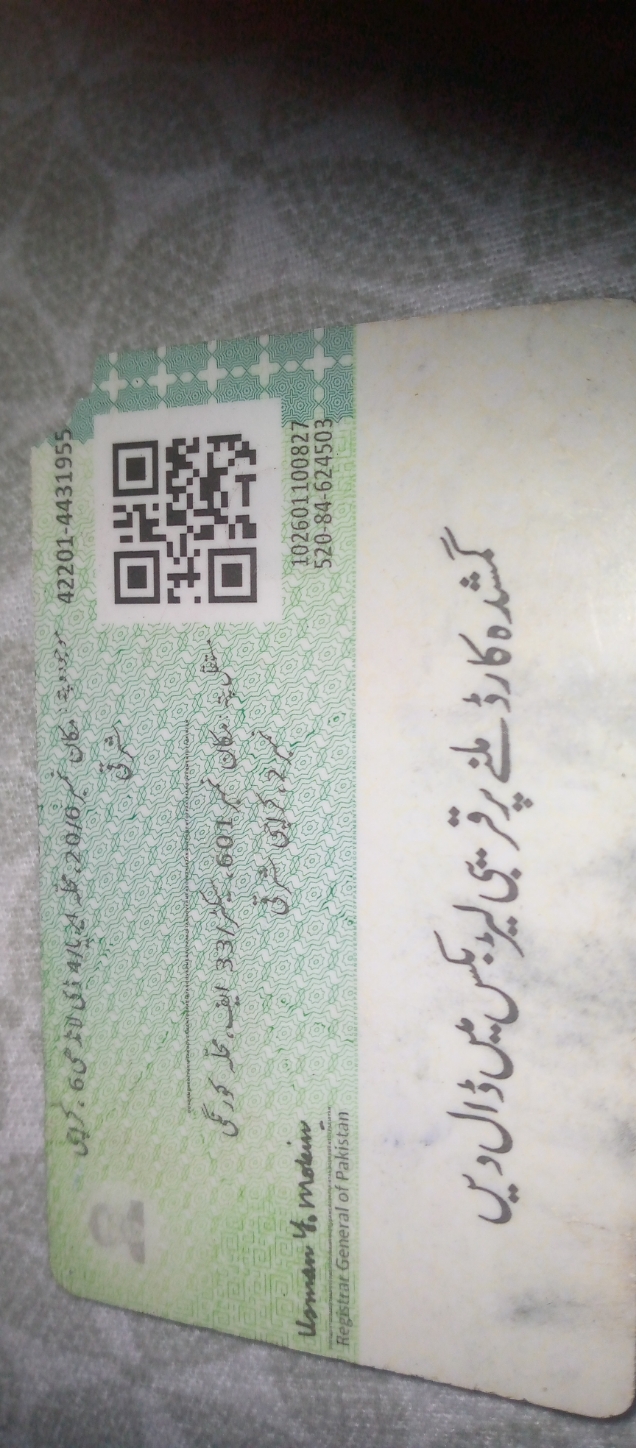 42201-4431955
موجودہ پتہ: مکان نمبر 20/6، محلہ ایریا 4 ڈی لانڈھی 6، کراچی
شرقی
مستقل پتہ: مکان نمبر 601، سیکٹر 33/ ایف، محلہ کورنگی
نمبر 2، کراچی شرقی
102601100827
520-84-624503
Usman Y. Mobin
Registrar General of Pakistan
گمشدہ کارڈ ملنے پر قریبی لیٹر بکس میں ڈال دیں